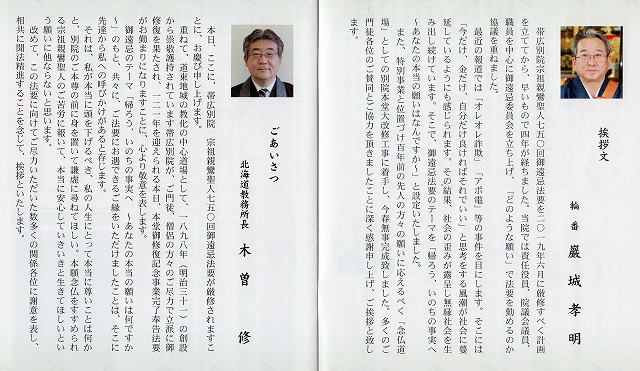 挨拶文
輪番 巖城孝明
帯広別院宗祖親鸞聖人七五〇回御遠忌法要を二〇一九年六月に厳修すべく計画
を立ててから、早いもので四年が経ちました。当院では責任役員、院議会議員、
職員を中心に御遠忌委員会を立ち上げ、「どのような願い」で法要を勤めるのか
協議を重ねました。
最近の報道では「オレオレ詐欺」「アポ電」等の事件を目にします。そこには
「今だけ、金だけ、自分だけ良ければそれでいい」と思考をする風潮が社会に蔓
延しているようにも感じられます。その結果、社会の歪みが露呈し無縁社会を生
み出し続けています。そこで、御遠忌法要のテーマを「帰ろう、いのちの事実へ
～あなたの本当の願いはなんですか～」と設定いたしました。
また、特別事業と位置づけ百年前の先人の方々の願いに応えるべく「念仏道
場」としての別院本堂大改修工事に着手し、今春無事完成致しました。多くのご
門徒各位のご賛同とご協力を頂きましたことに深く感謝申し上げ、ご挨拶と致し
ます。
ごあいさつ
北海道教務所長 木曽 修
本日、ここに、帯広別院 宗祖親鸞聖人七五〇回御遠忌法要が厳修されますこ
とに、お慶び申し上げます。
重ねて、道東地域の教化の中心道場として、一八九八年(明治三十一)の創設
から崇敬護持されています帯広別院が、ご門徒、僧侶の方々のご尽力で立派に御
修復を果たされ、一二一年を迎えられる本日、本堂御修復記念事業完了奉告法要
がお勤まりになりますことに、心より敬意を表します。
御遠忌のテーマ「帰ろう、いのちの事実へ ～あなたの本当の願いは何ですか
～」のもと、共々に、ご法要にお遇いできるご縁をいただけましたことは、そこに
先達から私への呼びかけがあると存じます。
それは、私が本当に頭を下げるべき、私の人生にとって本当に尊いことは何か
と、別院のご本尊の前に身を置いて謙虚に尋ねてほしい、本願念仏をすすめられ
る宗祖親鸞聖人のご苦労に報いて、本当に安心していきいきと生きてほしいとい
う願いに他ならないと思います。
改めて、この法要に向けてご尽力いただいた数多くの関係各位に謝意を表し、
相共に聞法精進することを念じて、挨拶といたします。